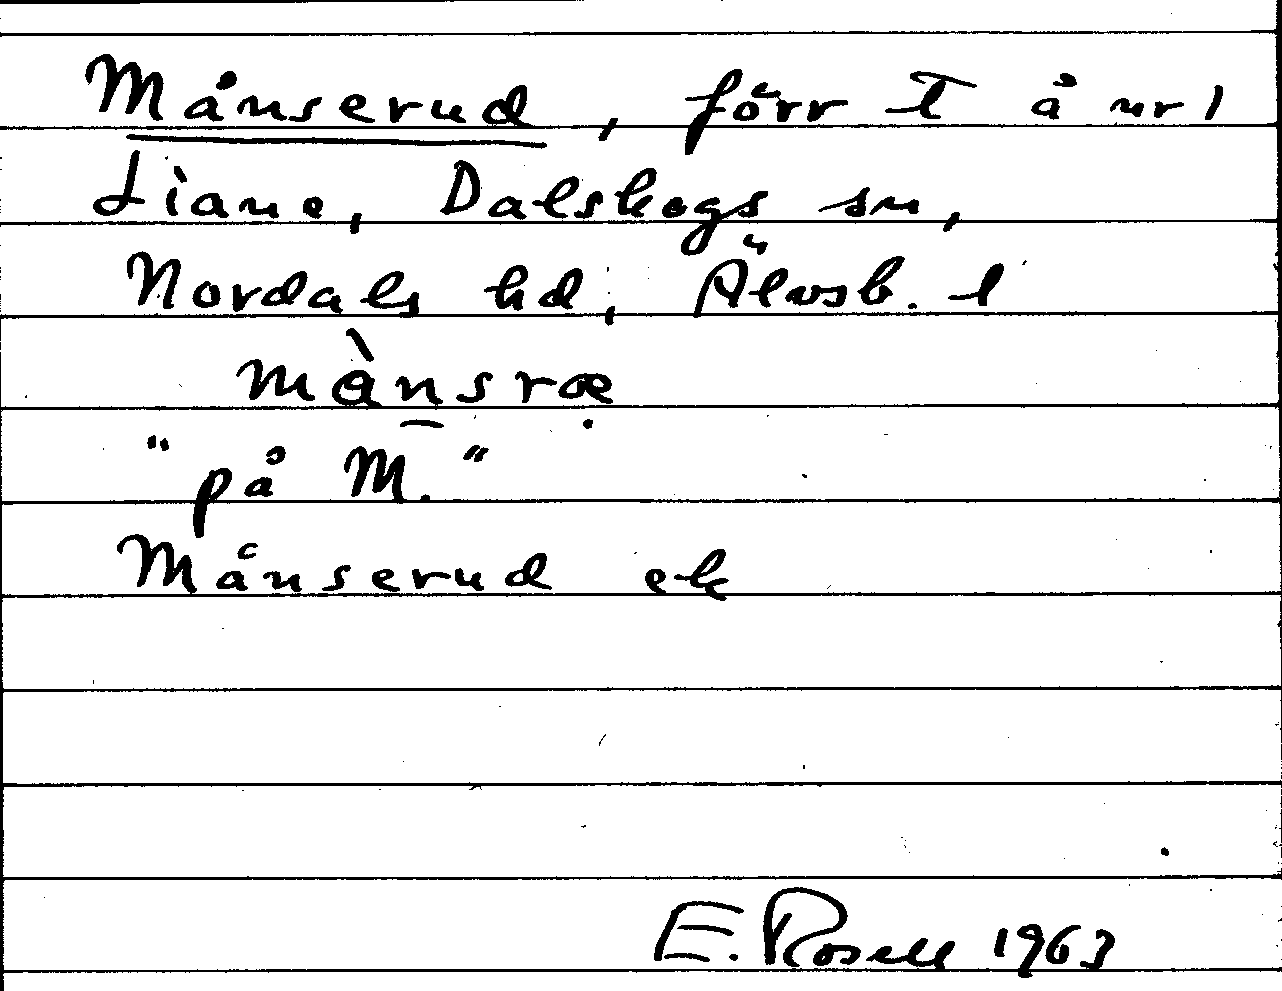 Månserud, förr T å nr 1
Liane, Dalskogs sn,
Nordals hd, Älvsb. l
mànsræ
"på M."
Månserud ek
E. Rosell 1963